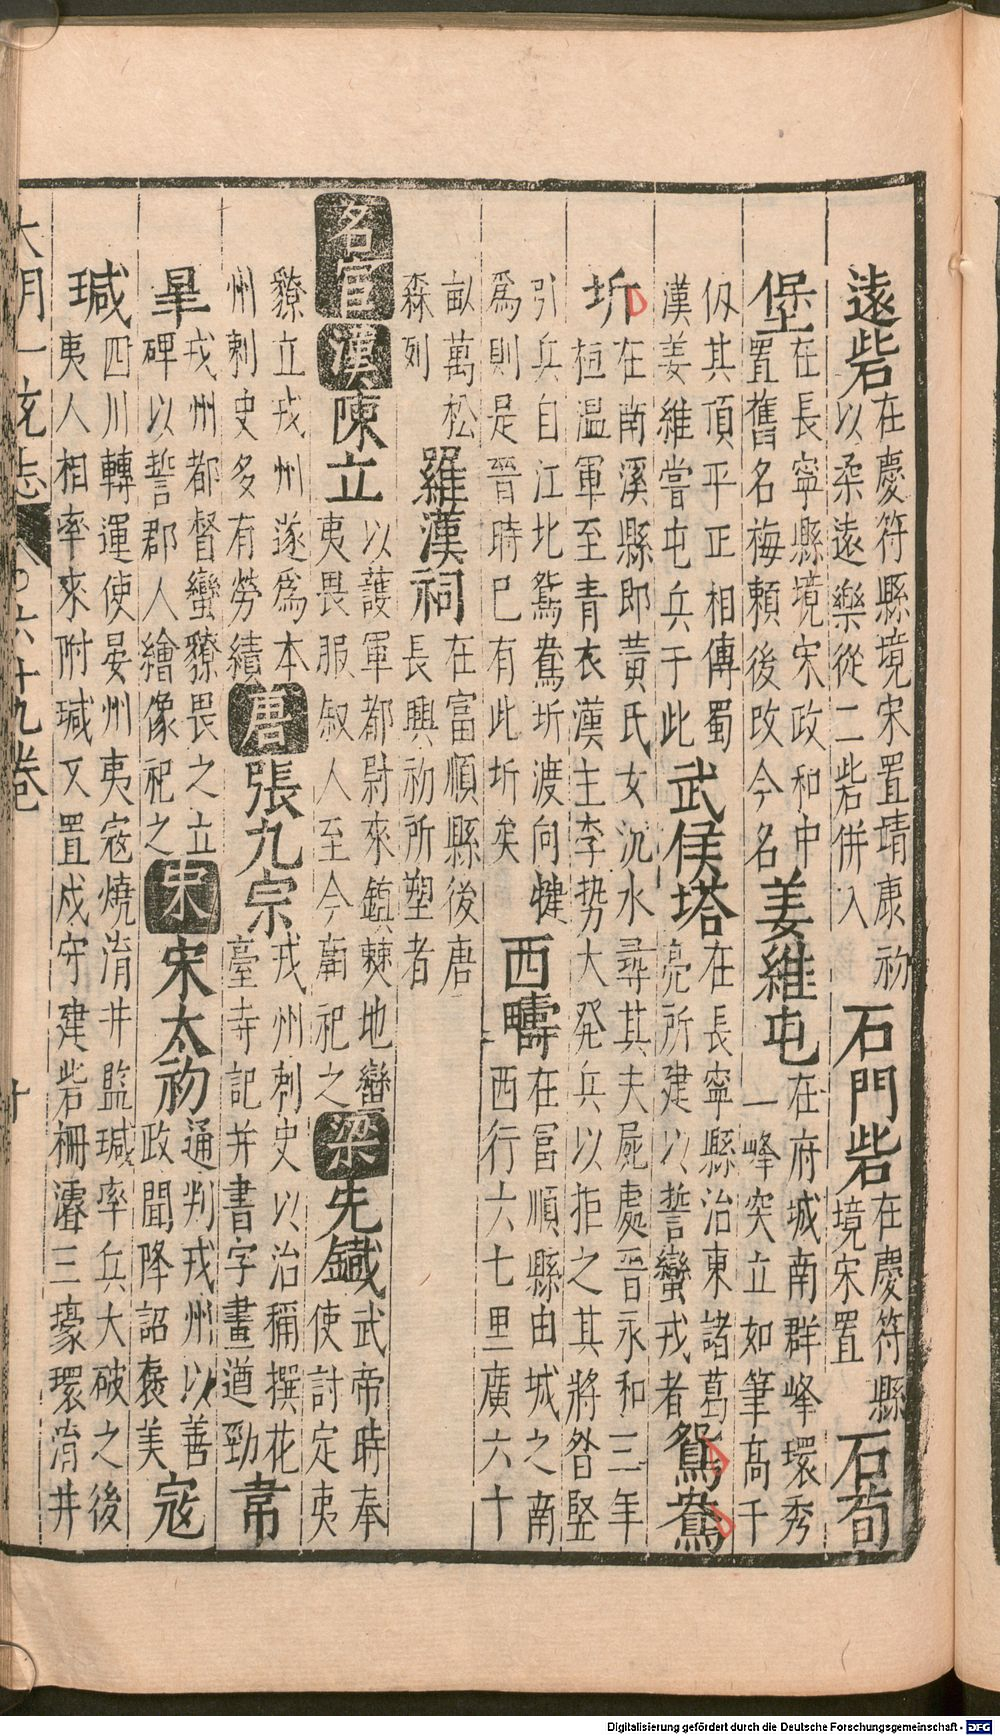 遠砦在慶符縣境宋置靖康初以柔遠樂從二砦併入石門砦在慶符縣境宋置石筍
堡在長寧縣境宋政和中置舊名梅賴後改今名姜維屯在府城南群峰環秀一峰突立如筆高千
仭其頂平正相傳蜀漢姜維嘗屯兵于此武侯塔在長寧縣治東諸葛亮所建以誓蠻戎者鴛鴦
圻在南溪縣即黃氏女沉水尋其夫屍處晉永和三年桓溫軍至青衣漢主李勢大發兵以拒之其將昝堅
引兵自江北鴛鴦圻渡向犍爲則是晉時已有此圻矣西疇在冨順縣由城之南西行六七里廣六十
畝萬松森列羅漢祠在富順縣後唐長興初所塑者
名宦漢陳立以護軍都尉來鎮僰地蠻夷畏服叙人至今廟祀之梁先鐵武帝時奉使討定夷
獠立戎州遂爲本州刺史多有勞績唐張九宗戎州刺史以治稱撰花臺寺記并書字畫遒勁韋
皐戎州都督蠻獠畏之立碑以誓郡人繪像祀之宋宋太初通判戎州以善政聞降詔褒美寇
瑊四川轉運使晏州夷寇燒淯井監瑊率兵大破之後夷人相率來附瑊又置戍守建砦柵濬三壕環淯井
大明一统志 六十九卷 十
Digitalisierung gefördert durch die Deutsche Forschungsgemeinschaft - DFG